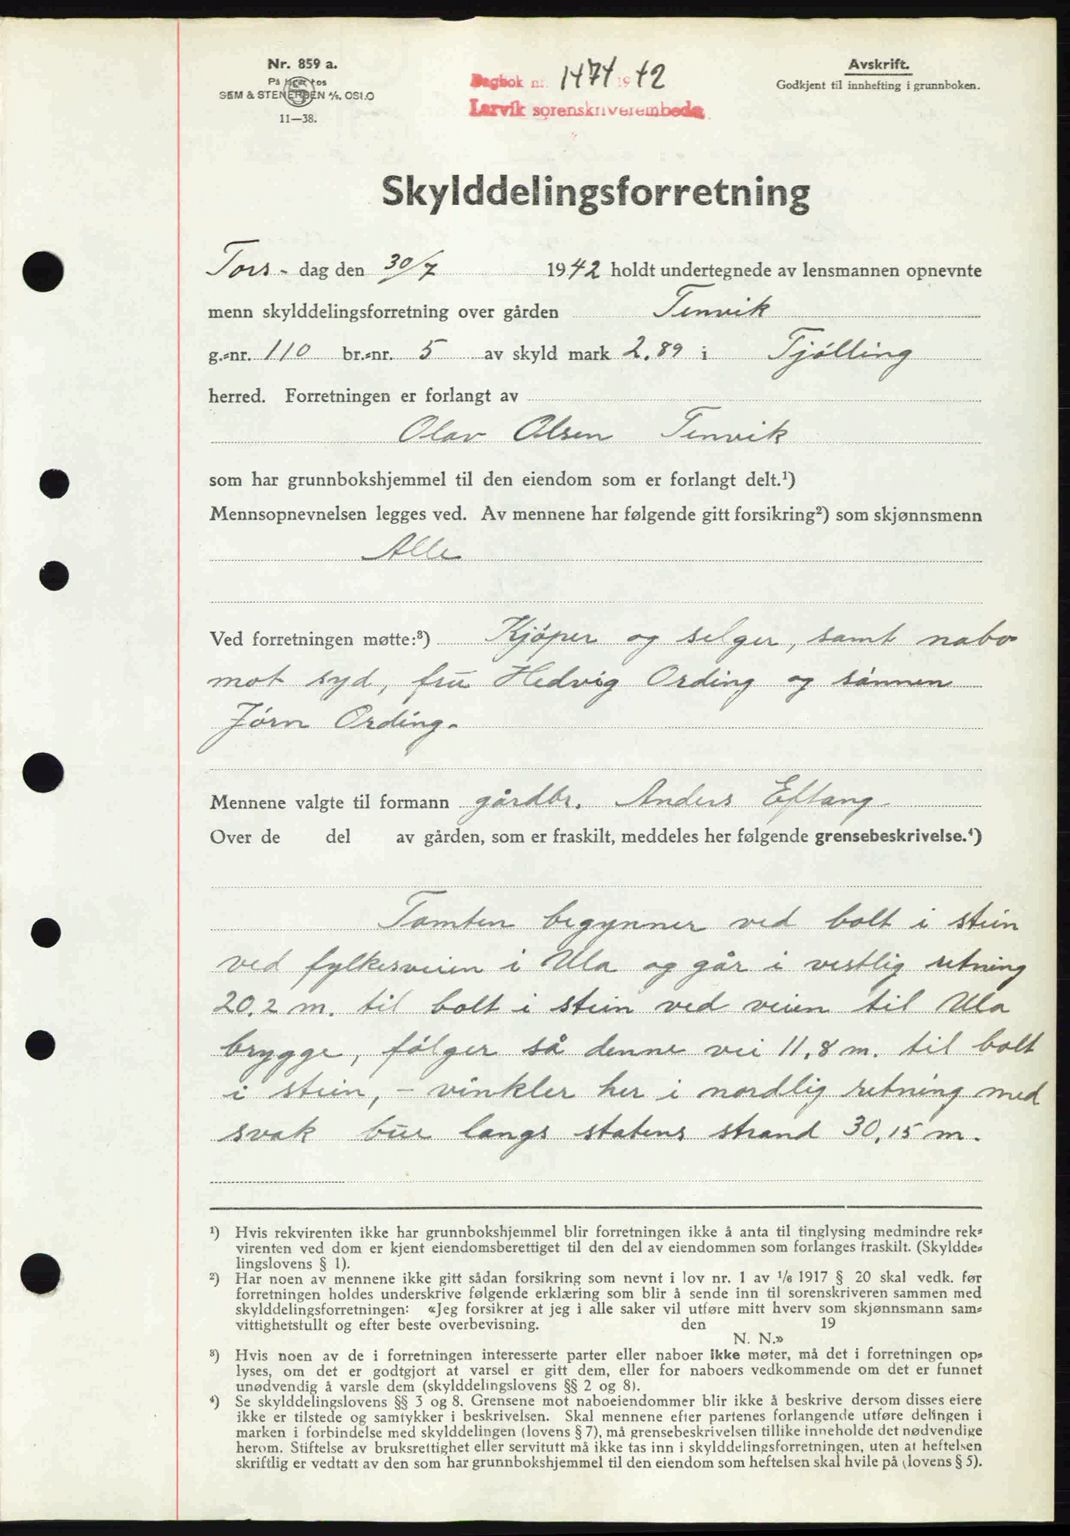 Nr. 859 a.
På lager hos
SEM & STENERSEN A/S. OSLO
11—38.
Dagbok nr. 1474 1942
Larvik sorenskriverembede
Avskrift.
Godkjent til innhefting i grunnboken.
Skylddelingsforretning
Tors- dag den 30/7 1942 holdt undertegnede av lensmannen opnevnte
menn skylddelingsforretning over gården Tenvik
g.-nr. 110 br.-nr. 5 av skyld mark 2.89 i Tjølling
herred. Forretningen er forlangt av
Olav Olsen Tenvik
som har grunnbokshjemmel til den eiendom som er forlangt delt.¹)
Mennsopnevnelsen legges ved. Av mennene har følgende gitt forsikring²) som skjønnsmenn
Alle
Ved forretningen møtte:³) Kjøper og selger, samt nabo
mot syd, fru Hedvig Ording og sønnen
Jørn Ording.
Mennene valgte til formann gårdbr. Anders Eftang
Over de del av gården, som er fraskilt, meddeles her følgende grensebeskrivelse.⁴)
Tomten begynner ved bolt i stein
ved fylkesveien i Ula og går i vestlig retning
20,2 m. til bolt i stein ved veien til Ula
brygge, følger så denne vei 11,8 m. til bolt
i stein, – vinkler her i nordlig retning med
svak bue langs statens strand 30,15 m.
¹) Hvis rekvirenten ikke har grunnbokshjemmel blir forretningen ikke å anta til tinglysing medmindre rek-
virenten ved dom er kjent eiendomsberettiget til den del av eiendommen som forlanges fraskilt. (Skyldde-
lingslovens § 1).
²) Har noen av mennene ikke gitt sådan forsikring som nevnt i lov nr. 1 av 1/6 1917 § 20 skal vedk. før
forretningen holdes underskrive følgende erklæring som blir å sende inn til sorenskriveren sammen med
skylddelingsforretningen: «Jeg forsikrer at jeg i alle saker vil utføre mitt hverv som skjønnsmann sam-
vittighetsfullt og efter beste overbevisning. den 19
N. N.»
³) Hvis noen av de i forretningen interesserte parter eller naboer ikke møter, må det i forretningen op-
lyses, om det er godtgjort at varsel er gitt dem, eller for naboers vedkommende om det er funnet
unødvendig å varsle dem (skylddelingslovens §§ 2 og 8).
⁴) Se skylddelingslovens §§ 3 og 8. Grensene mot naboeiendommer blir ikke å beskrive dersom disses eiere
ikke er tilstede og samtykker i beskrivelsen. Skal mennene efter partenes forlangende utføre delingen i
marken i forbindelse med skylddelingen (lovens § 7), må grensebeskrivelsen tillike inneholde det nødvendige
herom. Stiftelse av bruksrettighet eller servitutt må ikke tas inn i skylddelingsforretningen, uten at heftelsen
skriftlig er vedtatt av den som har grunnbokshjemmel til den eiendom som heftelsen skal hvile på (lovens § 5).